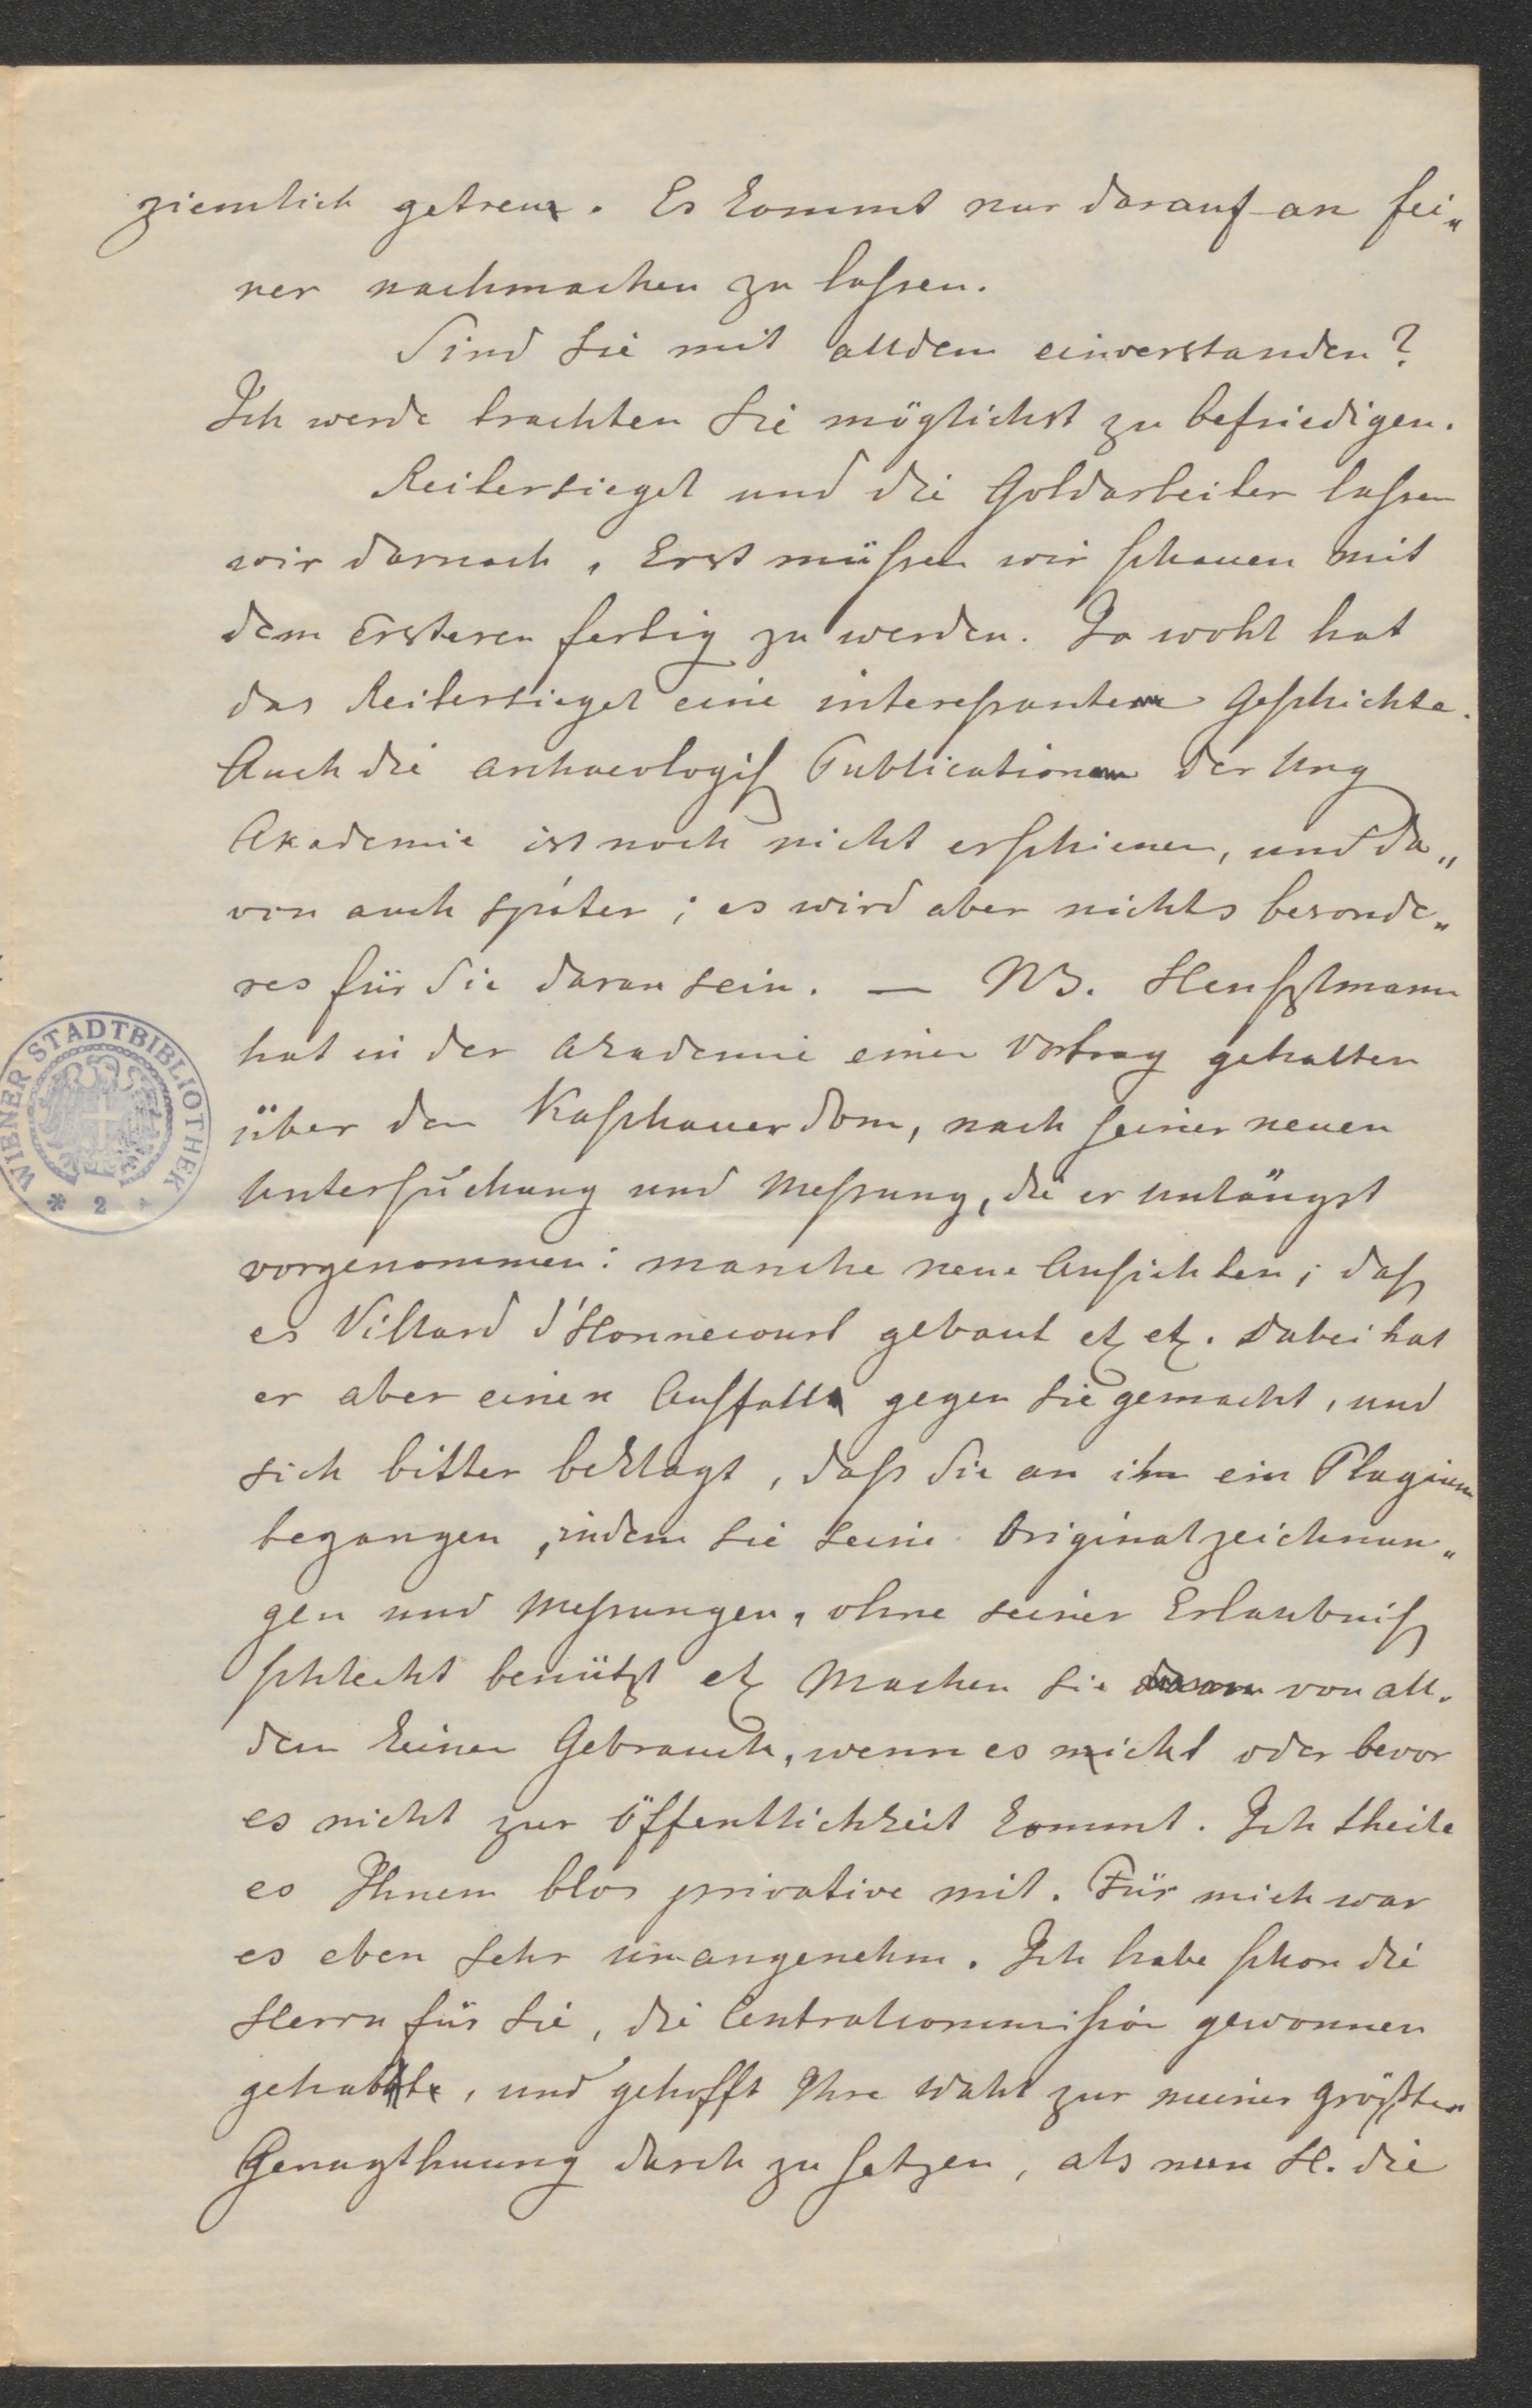 ziemlich getreu. Es kommt nur darauf an fei„
ner nachmachen zu lassen.
Sind Sie mit alldem einverstanden?
Ich werde trachten Sie möglichst zu befriedigen.
Reitersiegel und die Goldarbeiter lassen
wir darnach. Erst müssen wir schauen mit
dem Ersteren fertig zu werden. Ja wohl hat
das Reitersiegel eine interessante Geschichte.
Auch die archaeologisch Publication der Ung
Akademie ist noch nicht erschienen, und da„
von auch später; es wird aber nichts besonde„
res für Sie daran sein. — NB. Henszlmann
hat in der Akademie einen Vortrag gehalten
über den Kaschauer Dom, nach seiner neuen
Untersuchung und Messung, die er unlängst
vorgenommen: manche neue Ansichten; daß
es Villard d'Honnecourt gebaut etz etz. Dabei hat
er aber einen Ausfall gegen Sie gemacht, und
sich bitter beklagt, dass Sie an ihm ein Plagium
begangen, indem Sie seine Originalzeichnun„
gen und Messungen, ohne seiner Erlaubniß
schlecht benützt etz Machen Sie von all.
dem keinen Gebrauch, wenn es nicht oder bevor
es nicht zur Öffentlichkeit kommt. Ich theile
es Ihnem blos privative mit. Für mich war
es eben sehr unangenehm. Ich habe schon die
Herrn für Sie, die Centralcommission gewonnen
gehabt, und gehofft Ihre Wahl zur meiner größten
Genugthuung durch zu setzen, als nun H. die
WIENER STADTBIBLIOTHEK
* 2 *